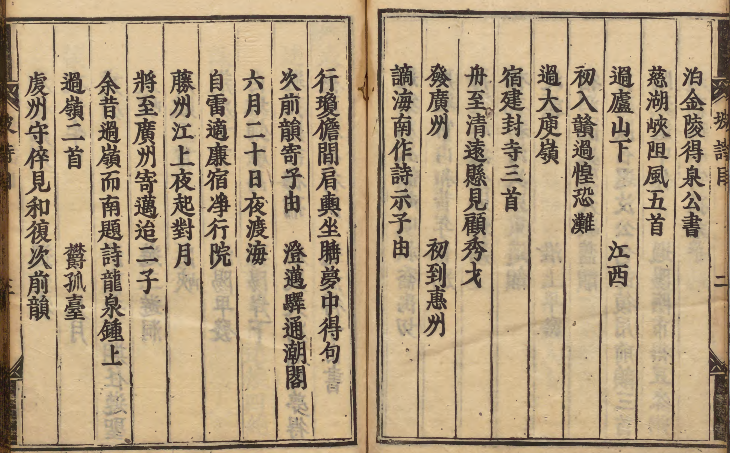 泊金陵得泉公書
慈湖峽阻風五首
過廬山下 江西
初入贛過惶恐灘
過大庾嶺
宿建封寺三首
舟至清遠縣見顧秀才
發廣州 初到惠州
謫海南作詩示子由
行瓊儋間肩輿坐睡夢中得句
次前韻寄子由 澄邁驛通潮閣
六月二十日夜渡海
自雷適廉宿凈行院
藤州江上夜起對月
將至廣州寄邁迨二子
余昔過嶺而南題詩龍泉鍾上
過嶺二首 欝孤臺
虔州守倅見和復次前韻